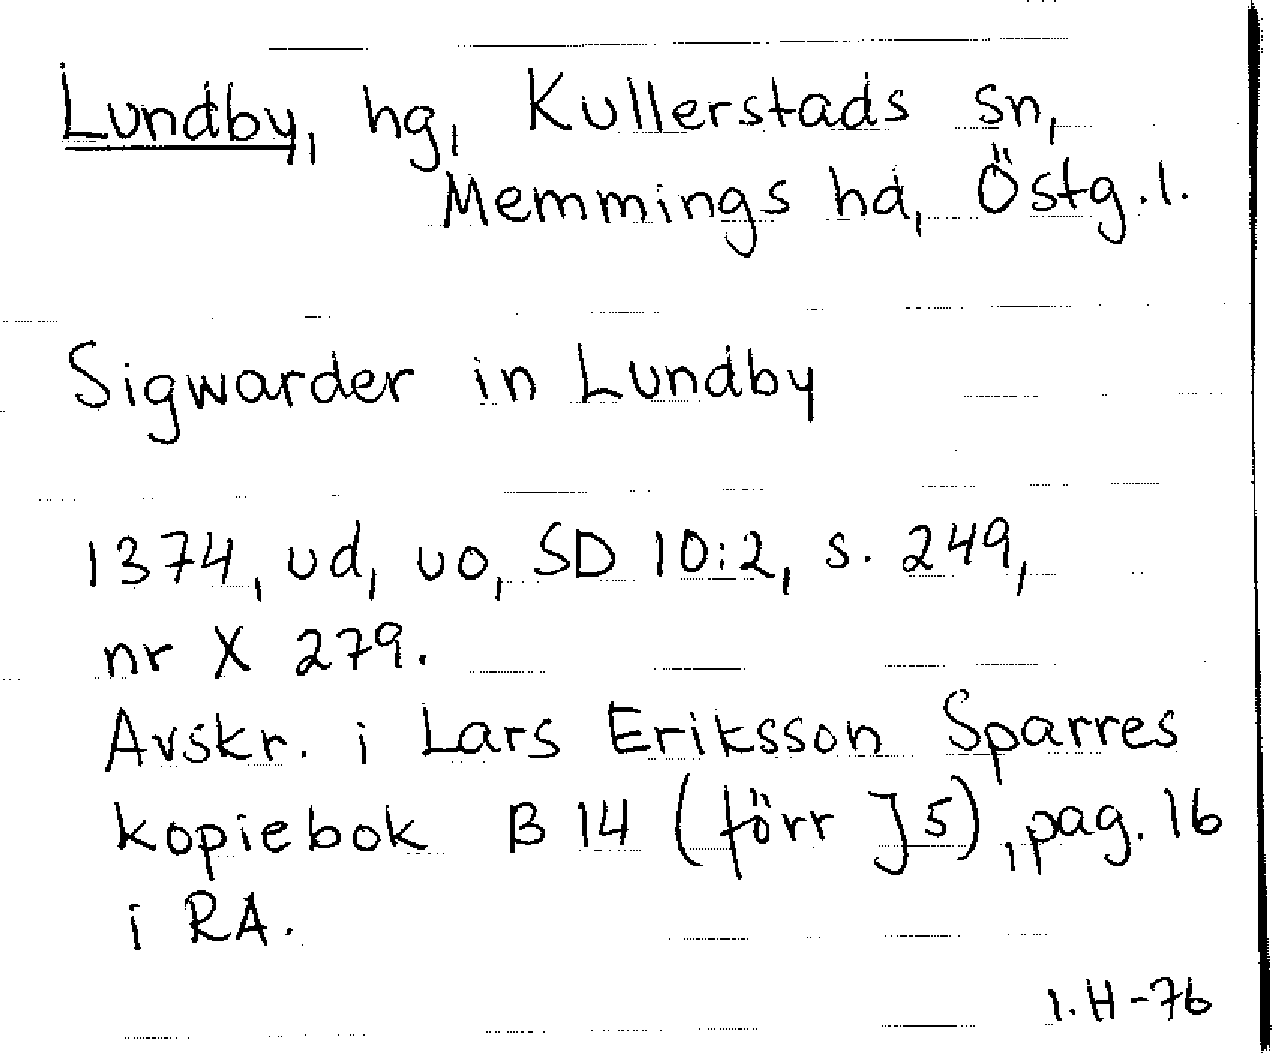 Lundby, hg, Kullerstads sn,
Memmings hd, Östg.l.
Sigwarder in Lundby
1374, ud, uo, SD 10:2, s. 249,
nr X 279.
Avskr. i Lars Eriksson Sparres
kopiebok B 14 (förr J 5), pag. 16
i RA.
I. H-76